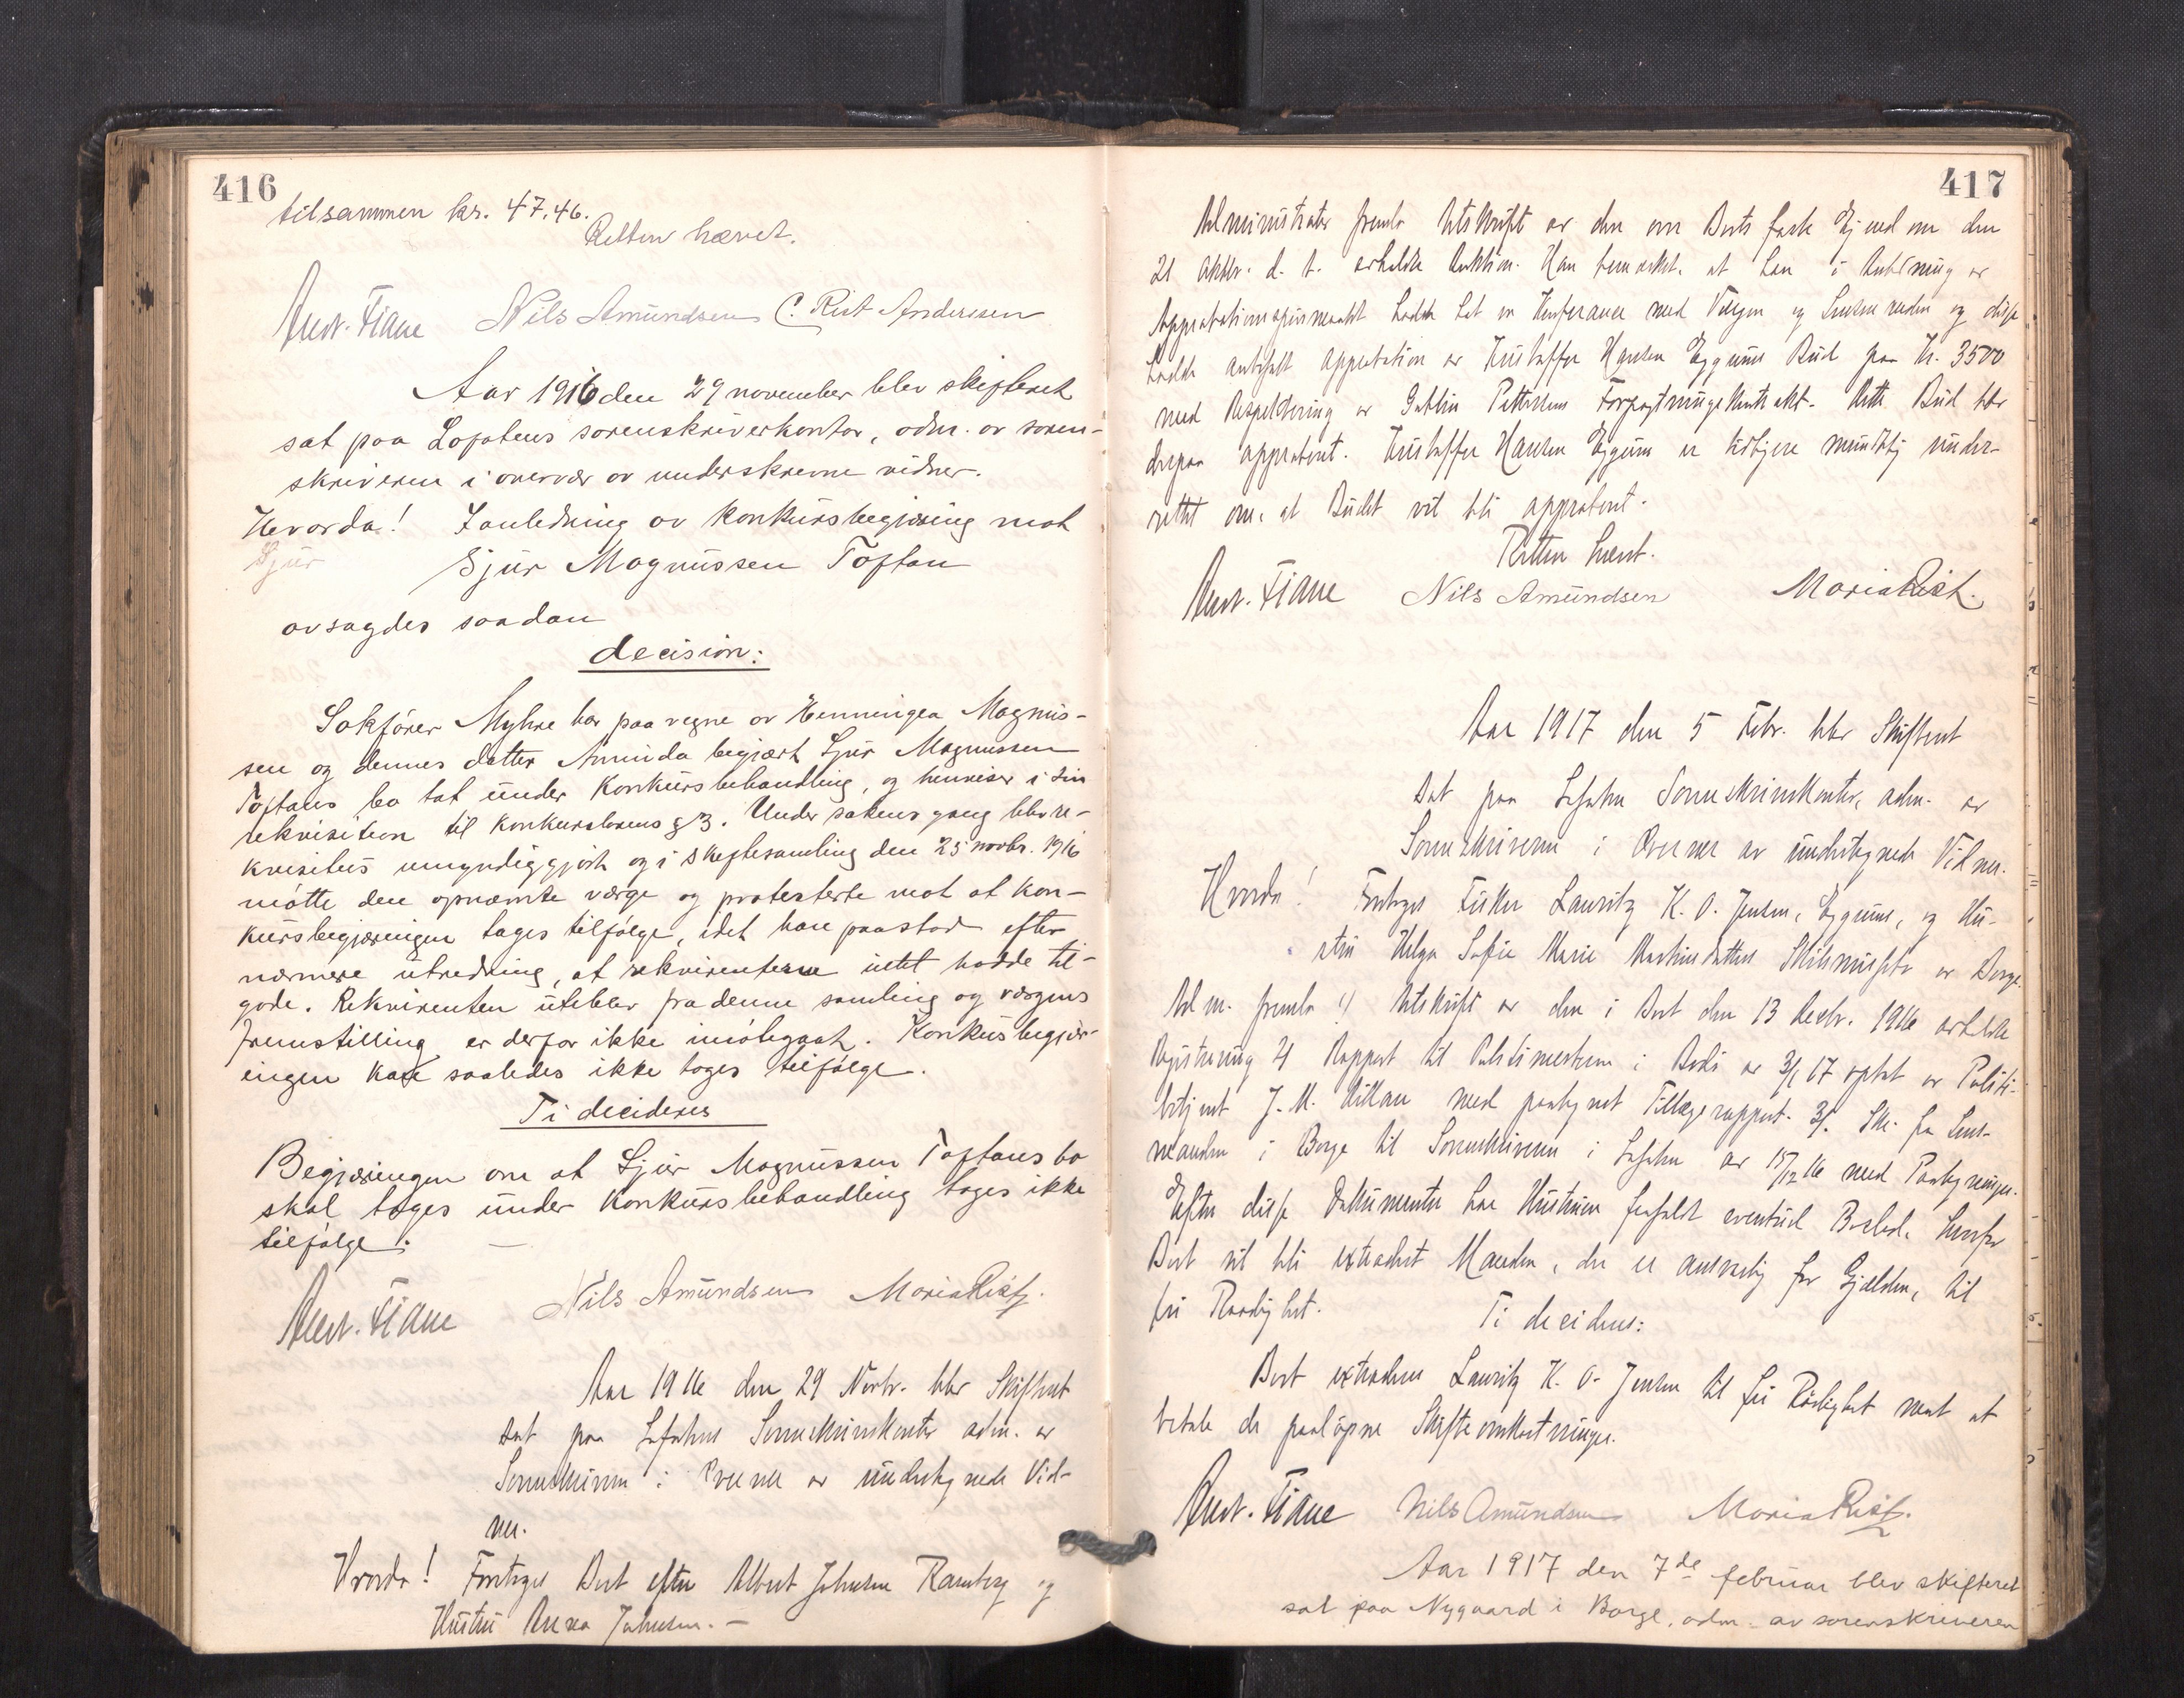 416
tilsammen kr. 47.46.
Retten hævet.
Nils Amundsen C. Rist Andersen
Aar 1916 den 29 november blev skifteret
sat paa Lofotens sorenskriverkontor, adm. av soren-
skriveren i overvær av underskrevne vidner.
Hvorda! I anledning av konkursbegjæring mot
Sjur
Sjur Magnussen Toftan
avsagdes saadan
decision:
Sakfører Myhre har paa vegne av Henningea Magnus-
sen og dennes datter Aminda begjært Sjur Magnussen
Toftans bo tat under konkursbehandling, og henviser i sin
rekvisition til konkurslovens § 3. Under sakens gang blev re-
kvisitus umyndiggjort og i skiftesamling den 25 novbr. 1916
møtte den opnævnte værge og protesterte mot at kon-
kursbegjæringen tages tilfølge, idet han paastod efter
nærmere utredning, at rekvirenterne intet hadde til-
gode. Rekvirenten uteblev fra denne samling og værgens
fremstilling er derfor ikke imøtegaat. Konkursbegjær-
ingen kan saaledes ikke tages tilfølge.
Ti decideres
Begjæringen om at Sjur Magnussen Toftans bo
skal tages under konkursbehandling tages ikke
tilfølge. —
Nils Amundsen Maria Rist.
Aar 1916 den 29 Novbr. blev Skifteret
sat paa Lofotens Sorenskriverkontor adm. av
Sorenskriveren i Overvær av undertegnede Vid-
ner.
Hvorda! Foretoges Boet efter Albert Johnsen Ramberg og
Hustru Anna Johnsen. —
417
Administrator fremla Utskrift av den over Boets faste Ejendom den
21 Oktbr. d. A. avholdte Auktion. Han bemærket, at han i Anledning av
Approbationsspørsmaalet hadde hat en Konferance med Værgen og Lensmanden og disse
hadde anbefalt Approbation av Kristoffer Hansen Eggums Bud paa Kr. 3500
med Respektering av Pettersens Forpagtningskontrakt. Dette Bud blev
derpaa approbert. Kristoffer Hansen Eggum er tidligere mundtlig under-
rettet om, at Budet vil bli approbert.
Retten hævet.
Nils Amundsen Maria Rist.
Aar 1917 den 5 Febr. blev Skifteret
sat paa Lofotens Sorenskriverkontor, adm. av
Sorenskriveren i Overvær av undertegnede Vidner.
Hvorda! Foretoges Fisker Lauritz K. O. Jensen, Eggum, og Hu-
stru Helga Sofie Marie Martinsdatters Skilsmissebo av Borge.
Adm. fremla 1) Utskrift av den i Boet den 13 Decbr. 1916 avholdte
Registrering 2) Rapport til Politimesteren i Bodø av 3/1 17 optat av Politi-
betjent J. M. med paategnet Tillægsrapport. 3) Skr. fra Lens-
manden i Borge til Sorenskriveren i Lofoten av 15/12 16 med Paategninger.
Efter disse Dokumenter har Hustruen frafaldt eventuel Boslod, hvorfor
Boet vil bli extradert Manden, der er ansvarlig for Gjælden, til
fri Raadighet.
Ti decideres:
Boet extraderes Lauritz K. O. Jensen til fri Raadighet mot at
betale de paaløpne Skifteomkostninger.
Nils Amundsen Maria Rist.
Aar 1917 den 7de februar blev skifteret
sat paa Nygaard i Borge, adm. av sorenskriveren